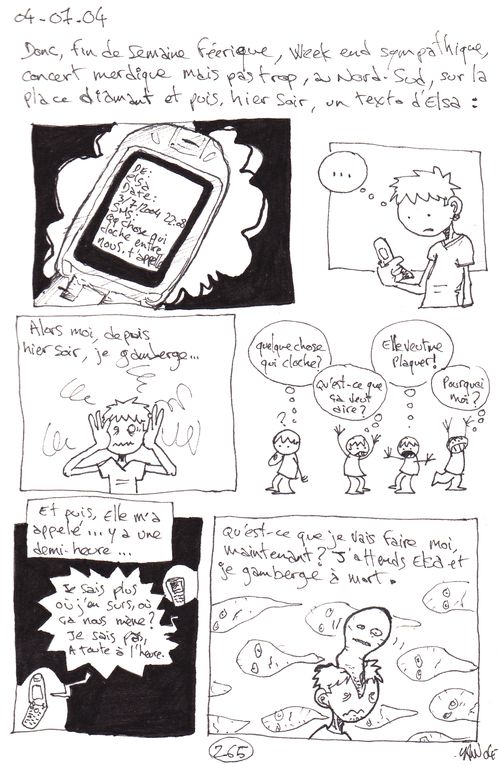 04-07-04
Donc, fin de semaine féérique, Week end sympathique,
concert merdique mais pas trop, au Nord-Sud, sur la
place diamant et puis, hier soir, un texto d'Elsa :
DE:
elsa
Date:
3/7/2004 22:28
SMS:
qq chose qui
cloche entre
nous, t'appell
...
Alors moi, depuis
hier soir, je gamberge...
quelque chose
qui cloche?
?
Qu'est-ce que
ça veut
dire?
Elle veut me
plaquer!
Pourquoi
moi?
Et puis, Elle m'a
appelé... y a une
demi-heure...
Je sais plus
où j'en suis, où
ça nous mène?
Je sais pas,
A toute à l'heure.
Qu'est-ce que je vais faire moi,
maintenant? J'attends Elsa et
je gamberge à mort.
265